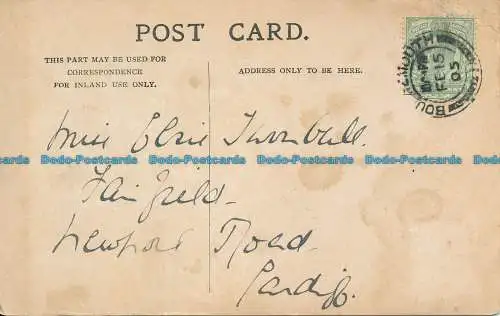 POST CARD.
THIS PART MAY BE USED FOR
CORRESPONDENCE
FOR INLAND USE ONLY.
ADDRESS ONLY TO BE HERE.
BOURNEMOUTH
FE 15
05
Miss Elsie Turnbull
Dodo-Postcards Dodo-Postcards Dodo-Postcards Dodo-Postcards Dodo-Postcards Dodo-Postcards
Fairfield
Newport Road
Cardiff